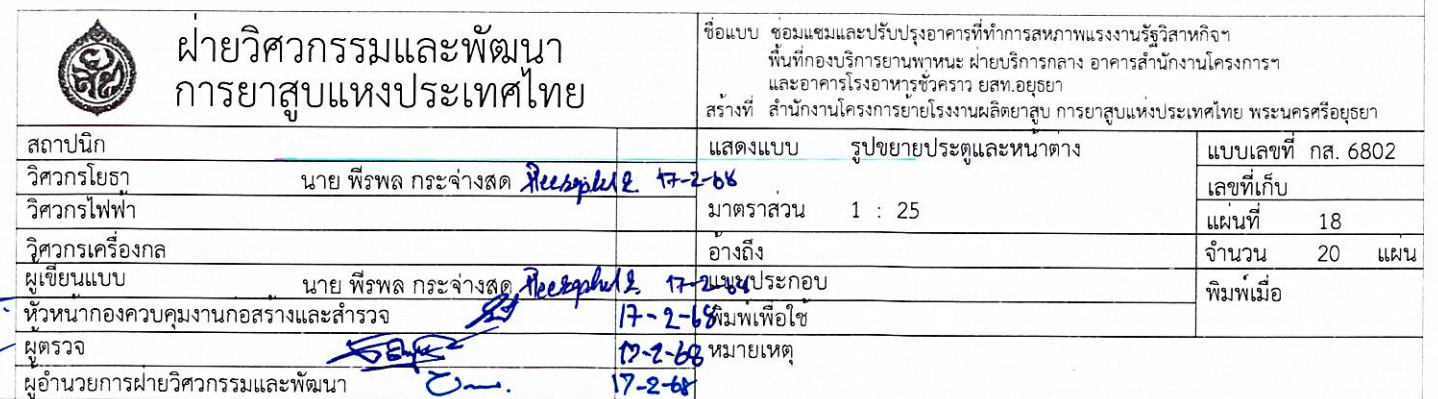 ฝ่ายวิศวกรรมและพัฒนา
การยาสูบแห่งประเทศไทย
ชื่อแบบ ซ่อมแซมและปรับปรุงอาคารที่ทำการสหภาพแรงงานรัฐวิสาหกิจฯ
พื้นที่กองบริการยานพาหนะ ฝ่ายบริการกลาง อาคารสำนักงานโครงการฯ
และอาคารโรงอาหารชั่วคราว ยสท.อยุธยา
สร้างที่ สำนักงานโครงการย้ายโรงงานผลิตยาสูบ การยาสูบแห่งประเทศไทย พระนครศรีอยุธยา
สถาปนิก
วิศวกรโยธา นาย พีรพล กระจ่างสด 17-2-68
วิศวกรไฟฟ้า
วิศวกรเครื่องกล
ผู้เขียนแบบ นาย พีรพล กระจ่างสด 17-2-68
หัวหน้ากองควบคุมงานก่อสร้างและสำรวจ 17-2-68
ผู้ตรวจ 17-2-68
ผู้อำนวยการฝ่ายวิศวกรรมและพัฒนา 17-2-68
แสดงแบบ รูปขยายประตูและหน้าต่าง
มาตราส่วน 1 : 25
อ้างถึง
แบบประกอบ
พิมพ์เพื่อใช้
หมายเหตุ
แบบเลขที่ กส. 6802
เลขที่เก็บ
แผ่นที่ 18
จำนวน 20 แผ่น
พิมพ์เมื่อ